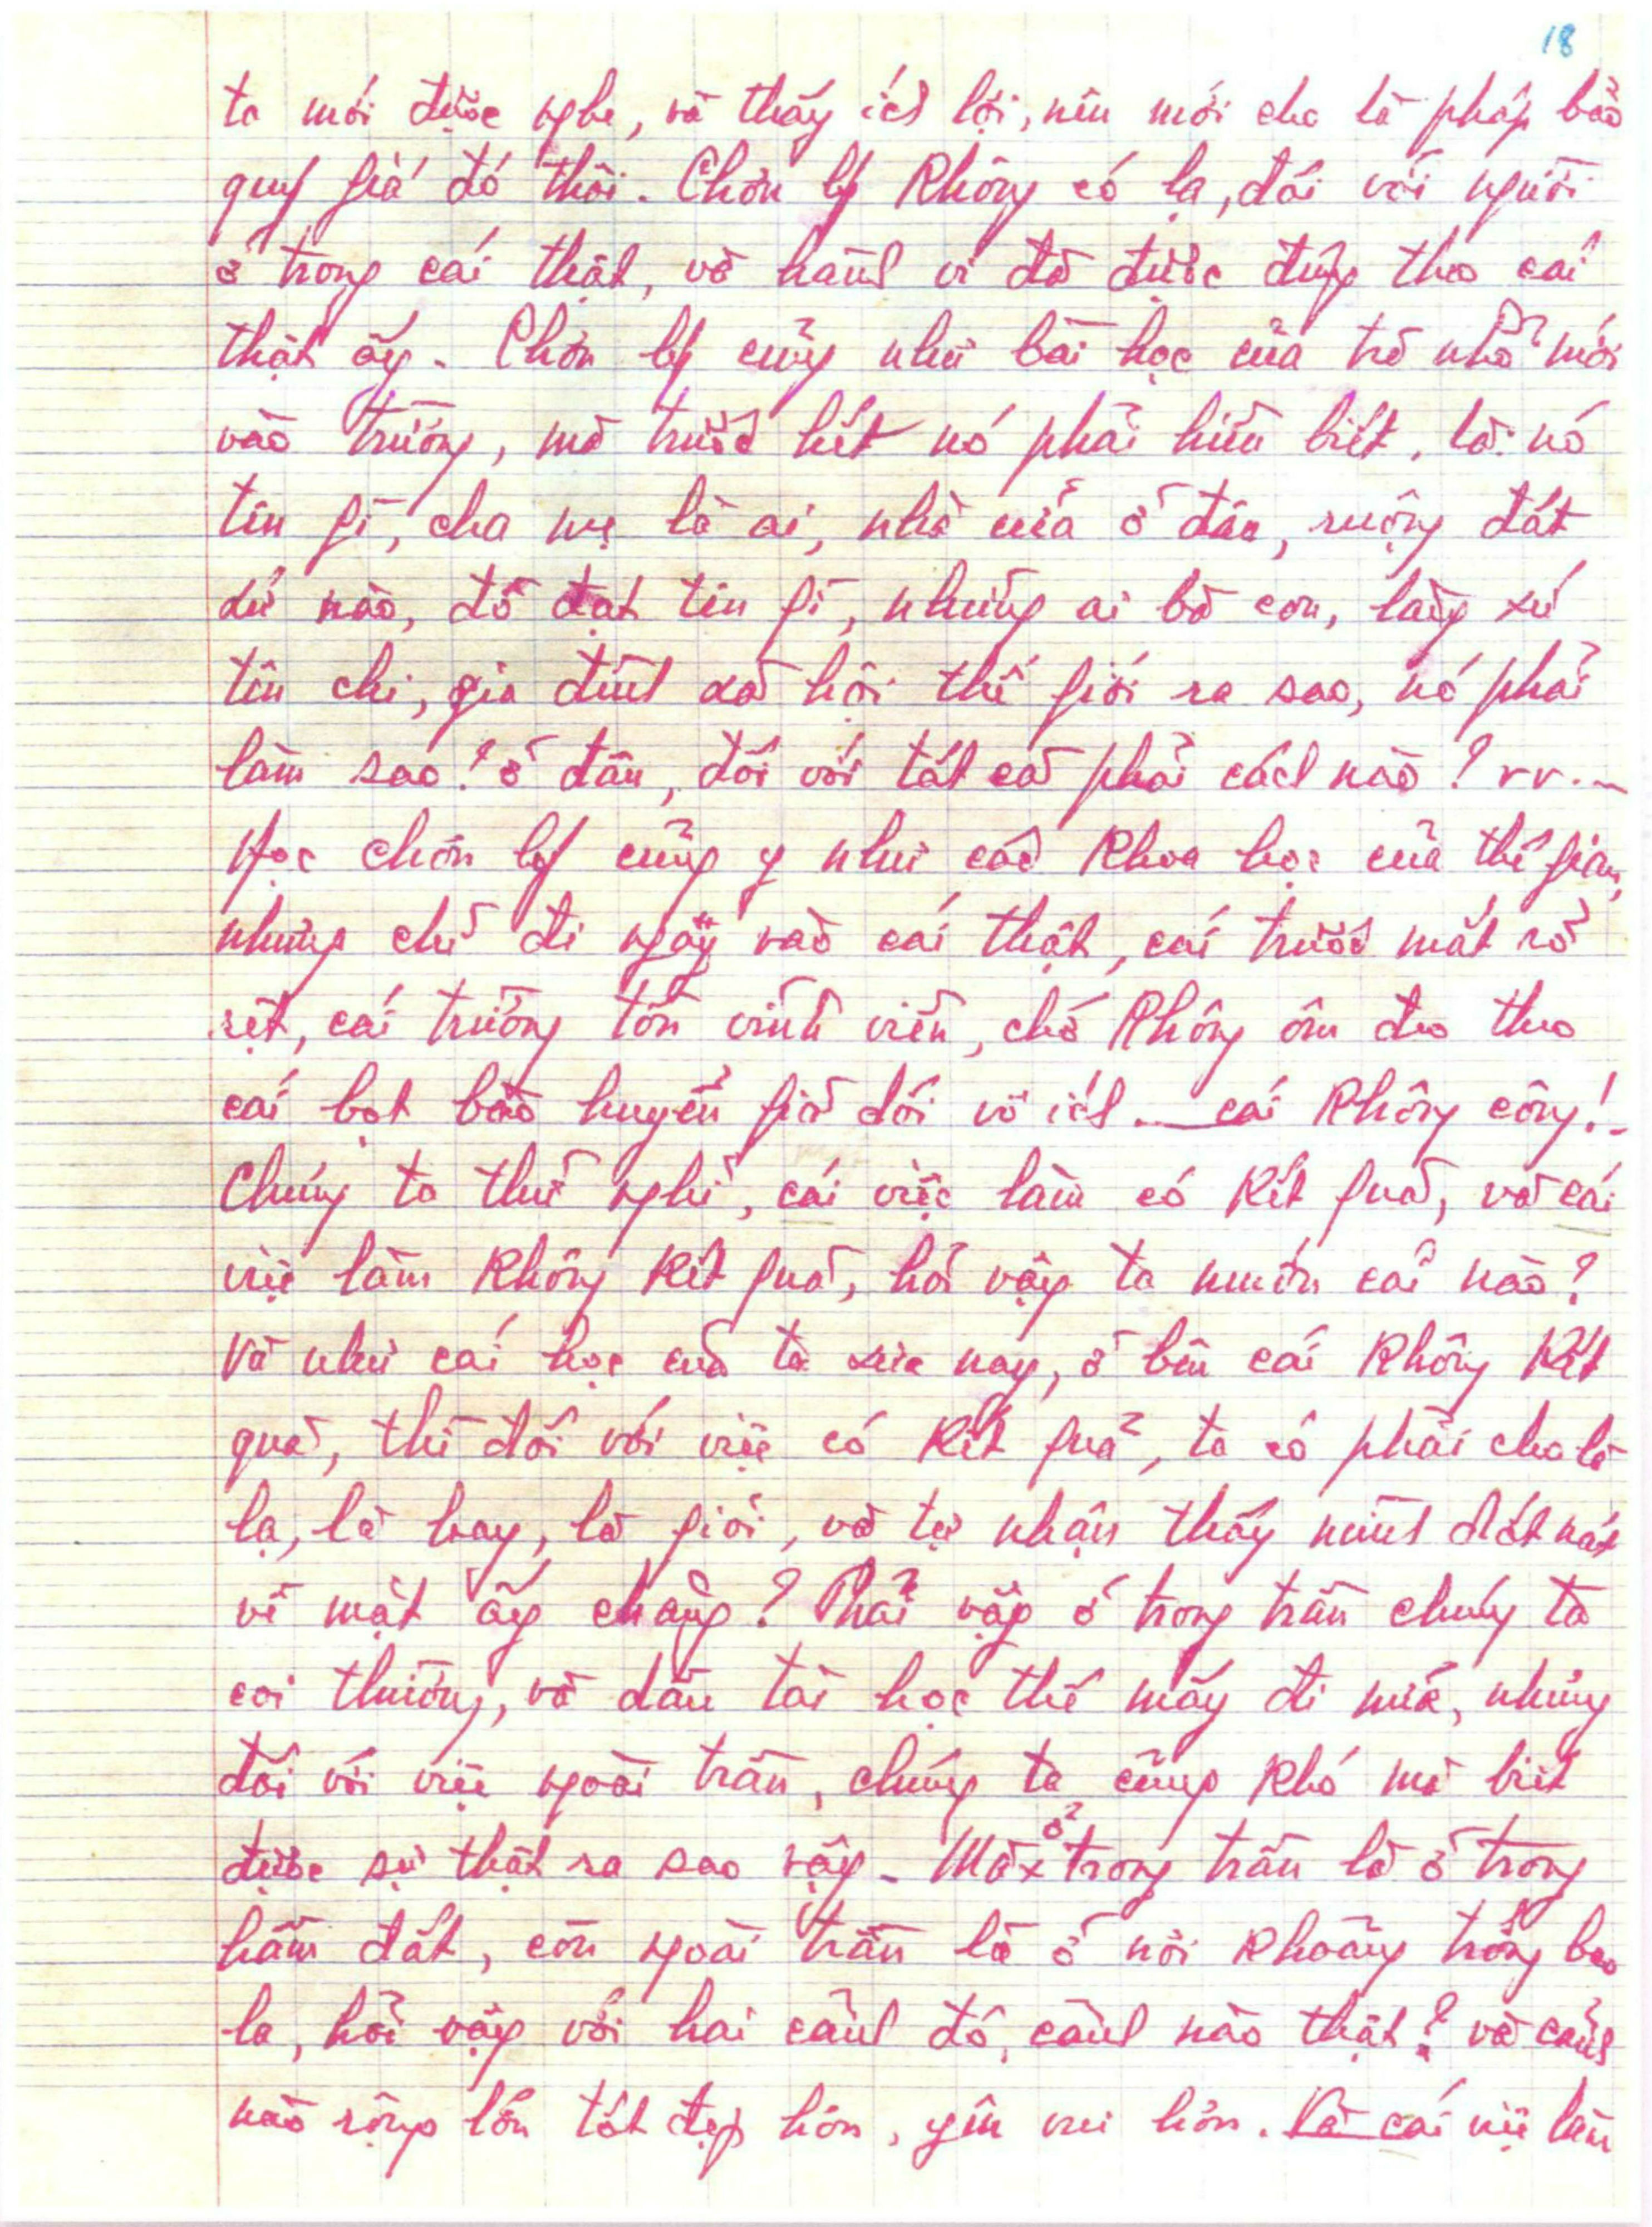 18
ta mới được nghe, và thấy ích lợi, nên mới cho là pháp bảo
quý giá đó thôi. Chơn lý không có lạ, đối với người
ở trong cái thật, và hành vi đã được đúng theo cái
thật ấy. Chơn lý cũng như bài học của trò nhỏ mới
vào trường, mà trước hết nó phải hiểu biết, là: nó
tên gì, cha mẹ là ai, nhà cửa ở đâu, ruộng đất
xứ nào, đồ đạt tên gì, những ai bà con, làng xứ
tên chi, gia đình xã hội thế giới ra sao, nó phải
làm sao? ở đâu, đối với tất cả phải cách nào? vv...
Học chơn lý cũng y như các khoa học của thế gian,
nhưng chỉ đi ngay vào cái thật, cái trước mắt rõ
rệt, cái trường tồn vĩnh viễn, chớ không ôm đeo theo
cái bọt bào huyễn giả dối vô ích. cái không công!
Chúng ta thử nghĩ, cái việc làm có kết quả, và cái
việc làm không kết quả, hỏi vậy ta muốn cái nào?
Và như cái học của ta xưa nay, ở bên cái không kết
quả, thì đối với việc có kết quả, ta có phải cho là
lạ, là hay, là giỏi, và tự nhận thấy mình dốt nát
về mặt ấy chăng? Phải vậy ở trong trần chúng ta
coi thường, và dầu tài học thế mấy đi nữa, nhưng
đối với việc ngoài trần, chúng ta cũng khó mà biết
được sự thật ra sao vậy. Mà ở trong trần là ở trong
hầm đất, còn ngoài trần là ở nơi khoảng trống bao
la, hỏi vậy với hai cảnh đó, cảnh nào thật? và cảnh
nào rộng lớn tốt đẹp hơn, yên vui hơn. Và cái việc làm